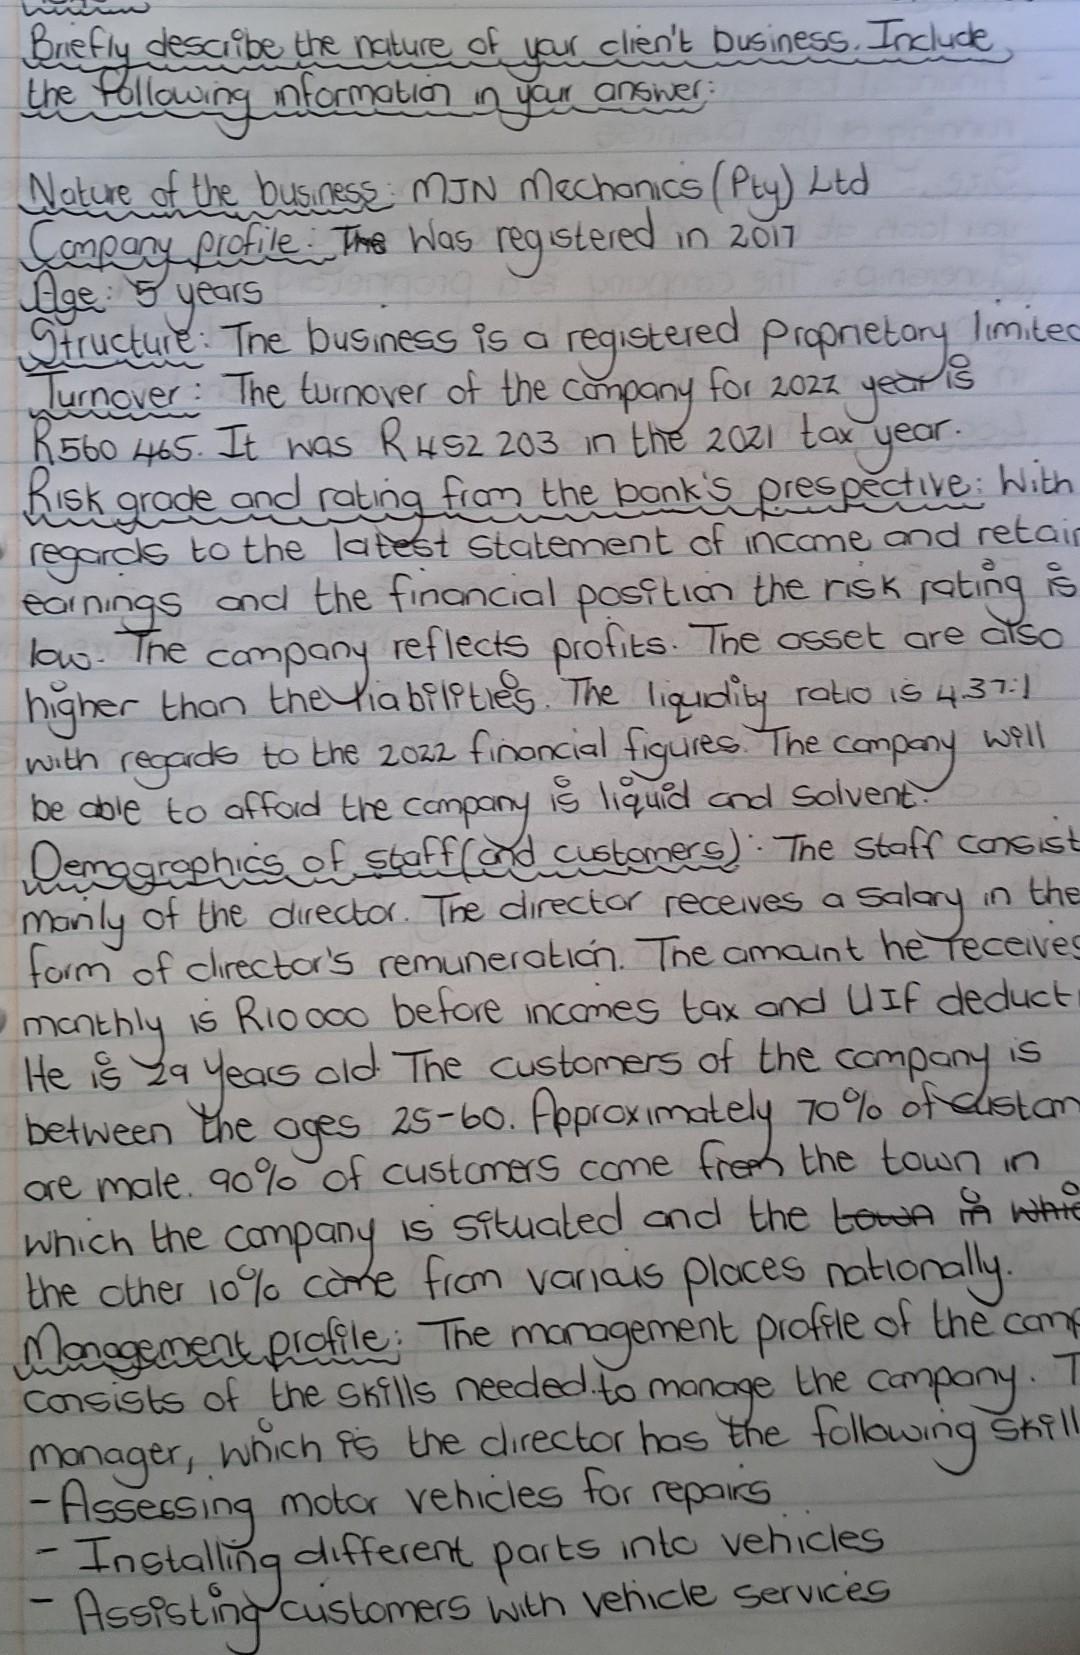 Briefly describe the nature of your clien't business. Include
the following information in your answer:
Nature of the business: MJN Mechanics (Pty) Ltd
Company profile: The Was registered in 2017
Age: 5 years
Structure: The business is a registered Proprietary limited
Turnover: The turnover of the company for 2022 year is
R560 465. It was R452 203 in the 2021 tax year.
Risk grade and rating from the bank's prespective: With
regards to the latest statement of income and retain
earnings and the financial position the risk rating is
low. The company reflects profits. The asset are also
higher than the liabilities. The liquidity ratio is 4.37:1
with regards to the 2022 financial figures. The company will
be able to afford the company is liquid and solvent.
Demographics of staff (and customers): The staff consist
mainly of the director. The director receives a salary in the
form of director's remuneration. The amount he receives
monthly is R10 000 before incomes tax and UIF deducti
He is 29 years old. The customers of the company is
between the ages 25-60. Approximately 70% of custom
are male. 90% of customers come from the town in
which the company is situated and the town in whic
the other 10% come from various places nationally.
Management profile: The management profile of the comp
consists of the skills needed to manage the company. T
manager, which is the director has the following skill
- Assessing motor vehicles for repairs
- Installing different parts into vehicles
- Assisting customers with vehicle services